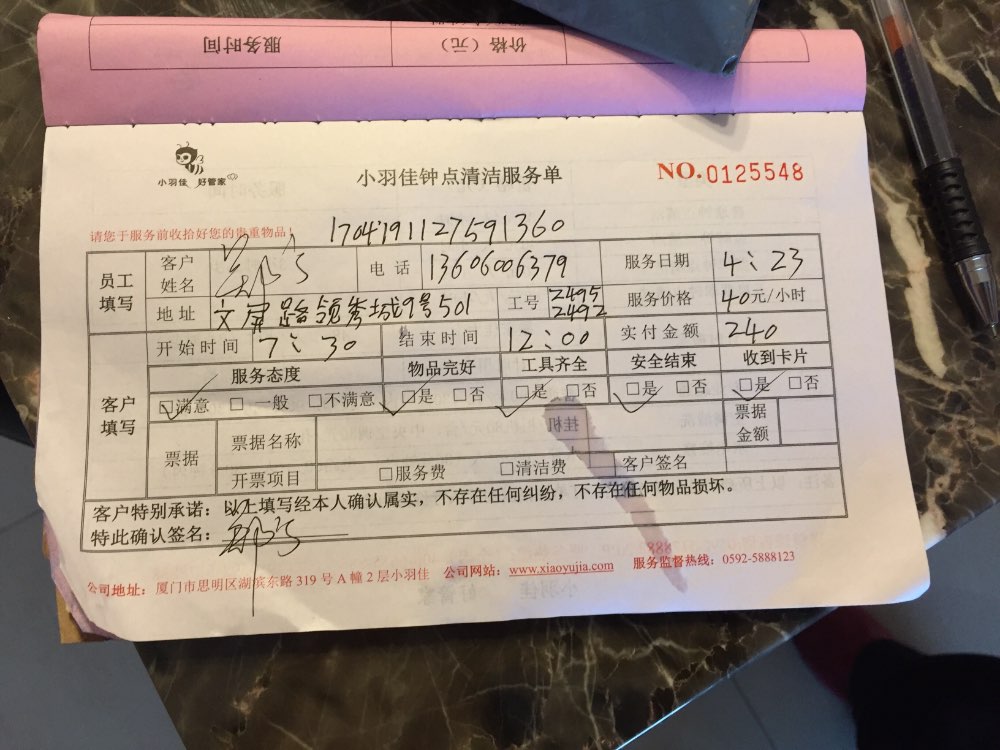 服务时间 价格（元）
小羽佳 好管家
小羽佳钟点清洁服务单
NO.0125548
请您于服务前收拾好您的贵重物品！ 1704191127591360
员工填写 客户姓名 电话 13606006379 服务日期 4：23
地址 文屏路领秀城9号501 工号 2495 2492 服务价格 40元/小时
客户填写 开始时间 7：30 结束时间 12：00 实付金额 240
服务态度 物品完好 工具齐全 安全结束 收到卡片
□满意 □一般 □不满意 □是 □否 □是 □否 □是 □否 □是 □否
票据 票据名称 票据金额
开票项目 □服务费 □清洁费 客户签名
客户特别承诺：以上填写经本人确认属实，不存在任何纠纷，不存在任何物品损坏。
特此确认签名：
公司地址：厦门市思明区湖滨东路 319 号 A 幢 2 层小羽佳 公司网站：www.xiaoyujia.com 服务监督热线：0592-5888123